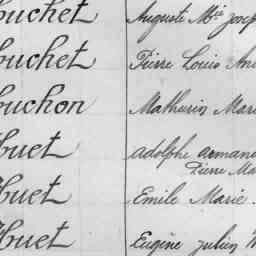 ouchet Auguste Mie Josep
ouchet Pierre Louis An
ouchon Mathurin Mari
Huet Adolphe Armand
Pierre Ma
Huet Emile Marie
Huet Eugène Julien M